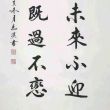 未來不迎
既過不戀